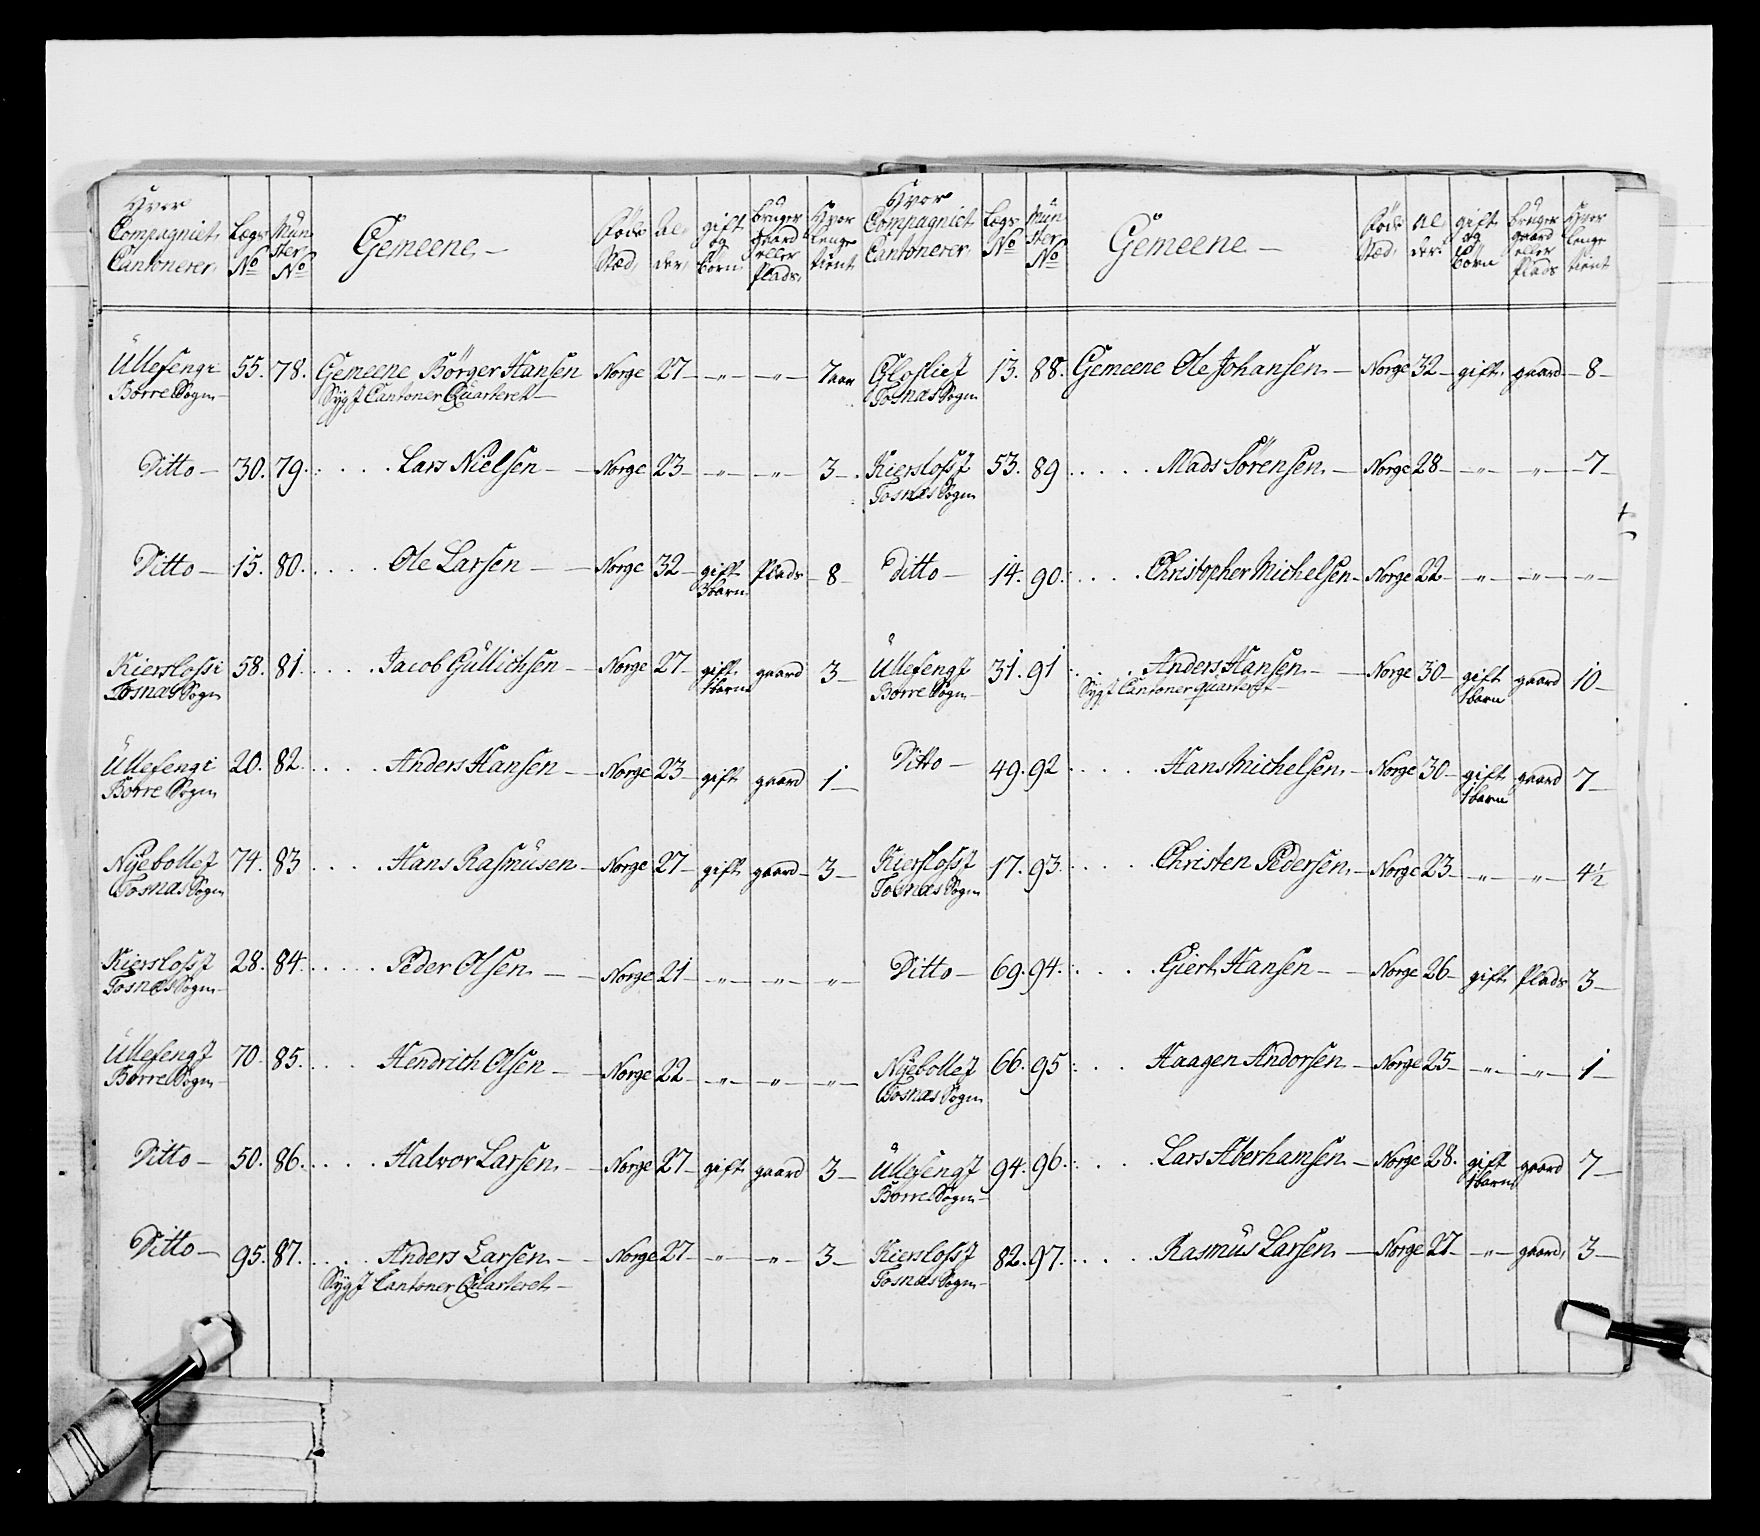 Hvor Compagniet Cantonerer Lægs No Mün ster No Gemeene Føde Stæd Al der gift og Børn bruger gaard eller Plads Hvor lenge tient
Üllefeng i Borre Sogn 55. 78. Gemeene Börger Hansen Norge 27 — „ — „ — 7 aar
Sygt Cantoner Qüarteret
Ditto — 30. 79. . . . . Lars Nielsen — Norge 23 — „ — „ — 3 —
Ditto — 15. 80. . . . . Ole Larsen — Norge 32 gift 3 barn Plads 8
Kierslof i Tosnæs Sogn 58. 81. . . . . Jacob Güllichsen — Norge 27 gift 1 barn gaard 3 —
Üllefeng i Borre Sogn 20. 82. . . . . Anders Hansen — Norge 23 gift gaard 1 —
Nÿebolle i Tosnæs Sogn 74. 83 . . . . Hans Rasmüsen — Norge 27 gift gaard 3 —
Kierslof i Tosnæs Sogn 28. 84. . . . . Peder Olsen — Norge 21 — „ — „ — „ —
Üllefeng i Borre Sogn 70. 85. . . . . Hendrich Olsen — Norge 22 — „ — „ — „ —
Ditto — 50. 86. . . . . Halvor Larsen — Norge 27 gift gaard 3 —
Ditto — 95. 87. . . . . Anders Larsen — Norge 27 — „ — „ — 3 —
Sygt Cantoner Qüarteret —
Hvor Compagniet Cantonerer Lægs No Mün ster No Gemeene — Føde Stæd Al der gift og Börn bruger gaard eller Plads Hvor lenge tient
Tosnæs Sogn 13. 88. Gemeene Ole Johansen — Norge 32 gift gaard 8 —
Kierslof i Tosnæs Sogn 53. 89 . . . . Mads Sörensen — Norge 28 — „ — „ — 7
Ditto — 14. 90. . . . . Christopher Michelsen — Norge 22 — „ — „ — „ —
Üllefeng i Borre Sogn 31. 91 . . . . Anders Hansen — Norge 30 gift 1 barn gaard 10 —
Sygt Cantoner Qüarteret —
Ditto — 49. 92 . . . . Hans Michelsen — Norge 30 gift 1 barn gaard 7 —
Kierslof i Tosnæs Sogn 17. 93. . . . . Christen Pedersen — Norge 23 — „ — „ — 4½
Ditto — 69. 94. . . . . Giert Hansen — Norge 26 gift Plads 3 —
Nÿebolle i Tosnæs Sogn 66. 95 . . . . Haagen Andorsen — Norge 25 — „ — „ — 1 —
Üllefeng i Borre Sogn 94. 96. . . . . Lars Aberhamsen — Norge 28. gift 1 barn gaard 7 —
Kierslof i Tosnæs Sogn 82. 97. . . . . Rasmüs Larsen — Norge 27 — „ — gaard 3 —